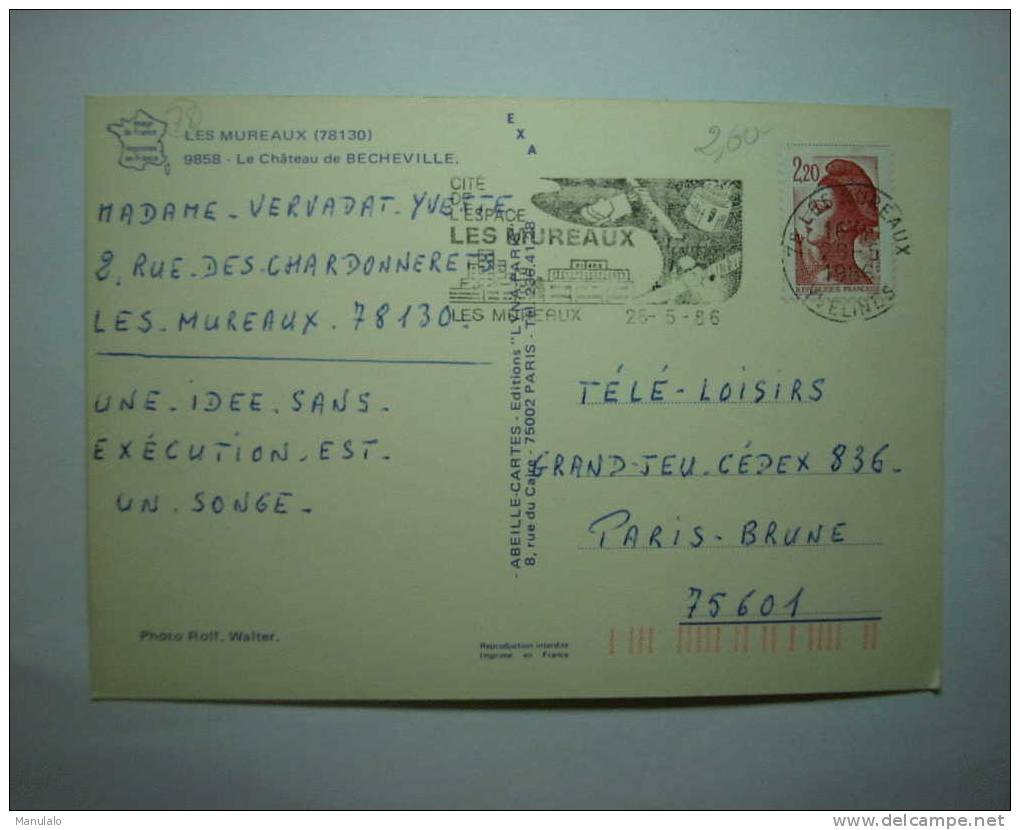 LES MUREAUX (78130)
9858 - Le Château de BECHEVILLE.
MADAME - VERVADAT - YVETTE
2, RUE - DES - CHARDONNERETS
LES - MUREAUX - 78130 -
UNE - IDEE - SANS -
EXÉCUTION - EST -
UN - SONGE -
Photo Rolf, Walter.
EXA
2,60-
CITÉ
DE
L'ESPACE
LES MUREAUX
LES MUREAUX 26-5-86
- ABEILLE-CARTES - Editions "LYNA-PARIS"
8, rue du Caire - 75002 PARIS - Tél. 236.41.28
2,20
REPUBLIQUE FRANÇAISE
78 LES MUREAUX
YVELINES
TÉLÉ - LOISIRS
GRAND-JEU-CÉDEX 836 -
PARIS - BRUNE
75601
Reproduction interdite
Imprimé en France
Manulalo
www.delcampe.net